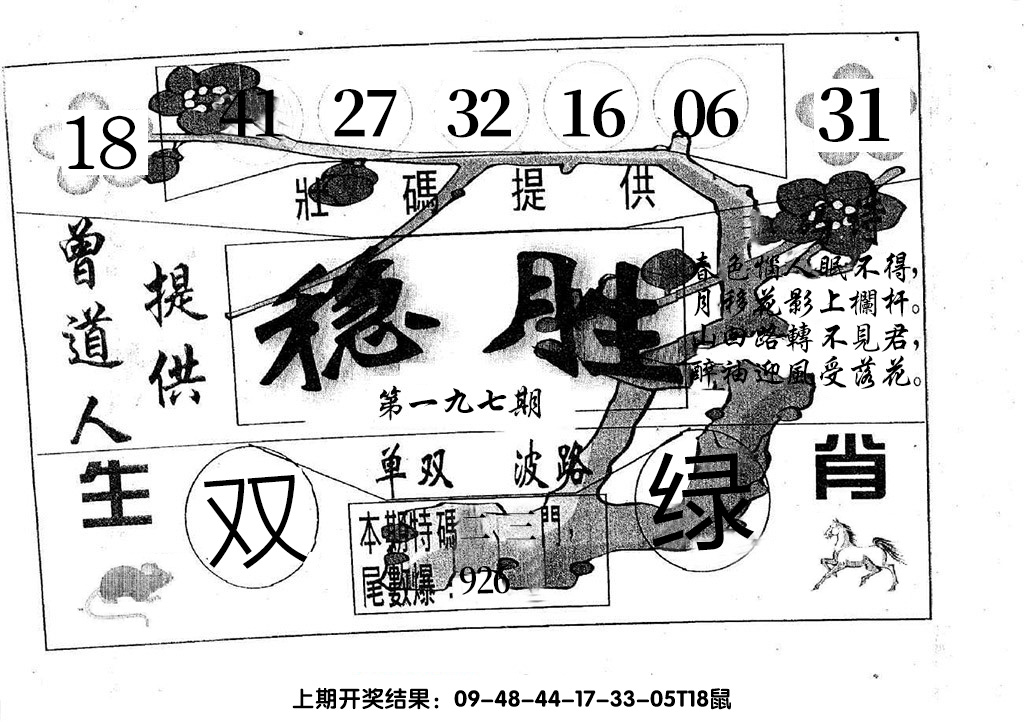 18 41 27 32 16 06 31
壯碼提供
曾道人
提供
稳胜
第一九七期
特
春色惱人眠不得,
月移花影上欄杆。
山回路轉不見君,
醉袖迎風受落花。
单双 波路
生肖
双
绿
本期特碼二、三門,
尾數爆:926
上期开奖结果：09-48-44-17-33-05T18鼠